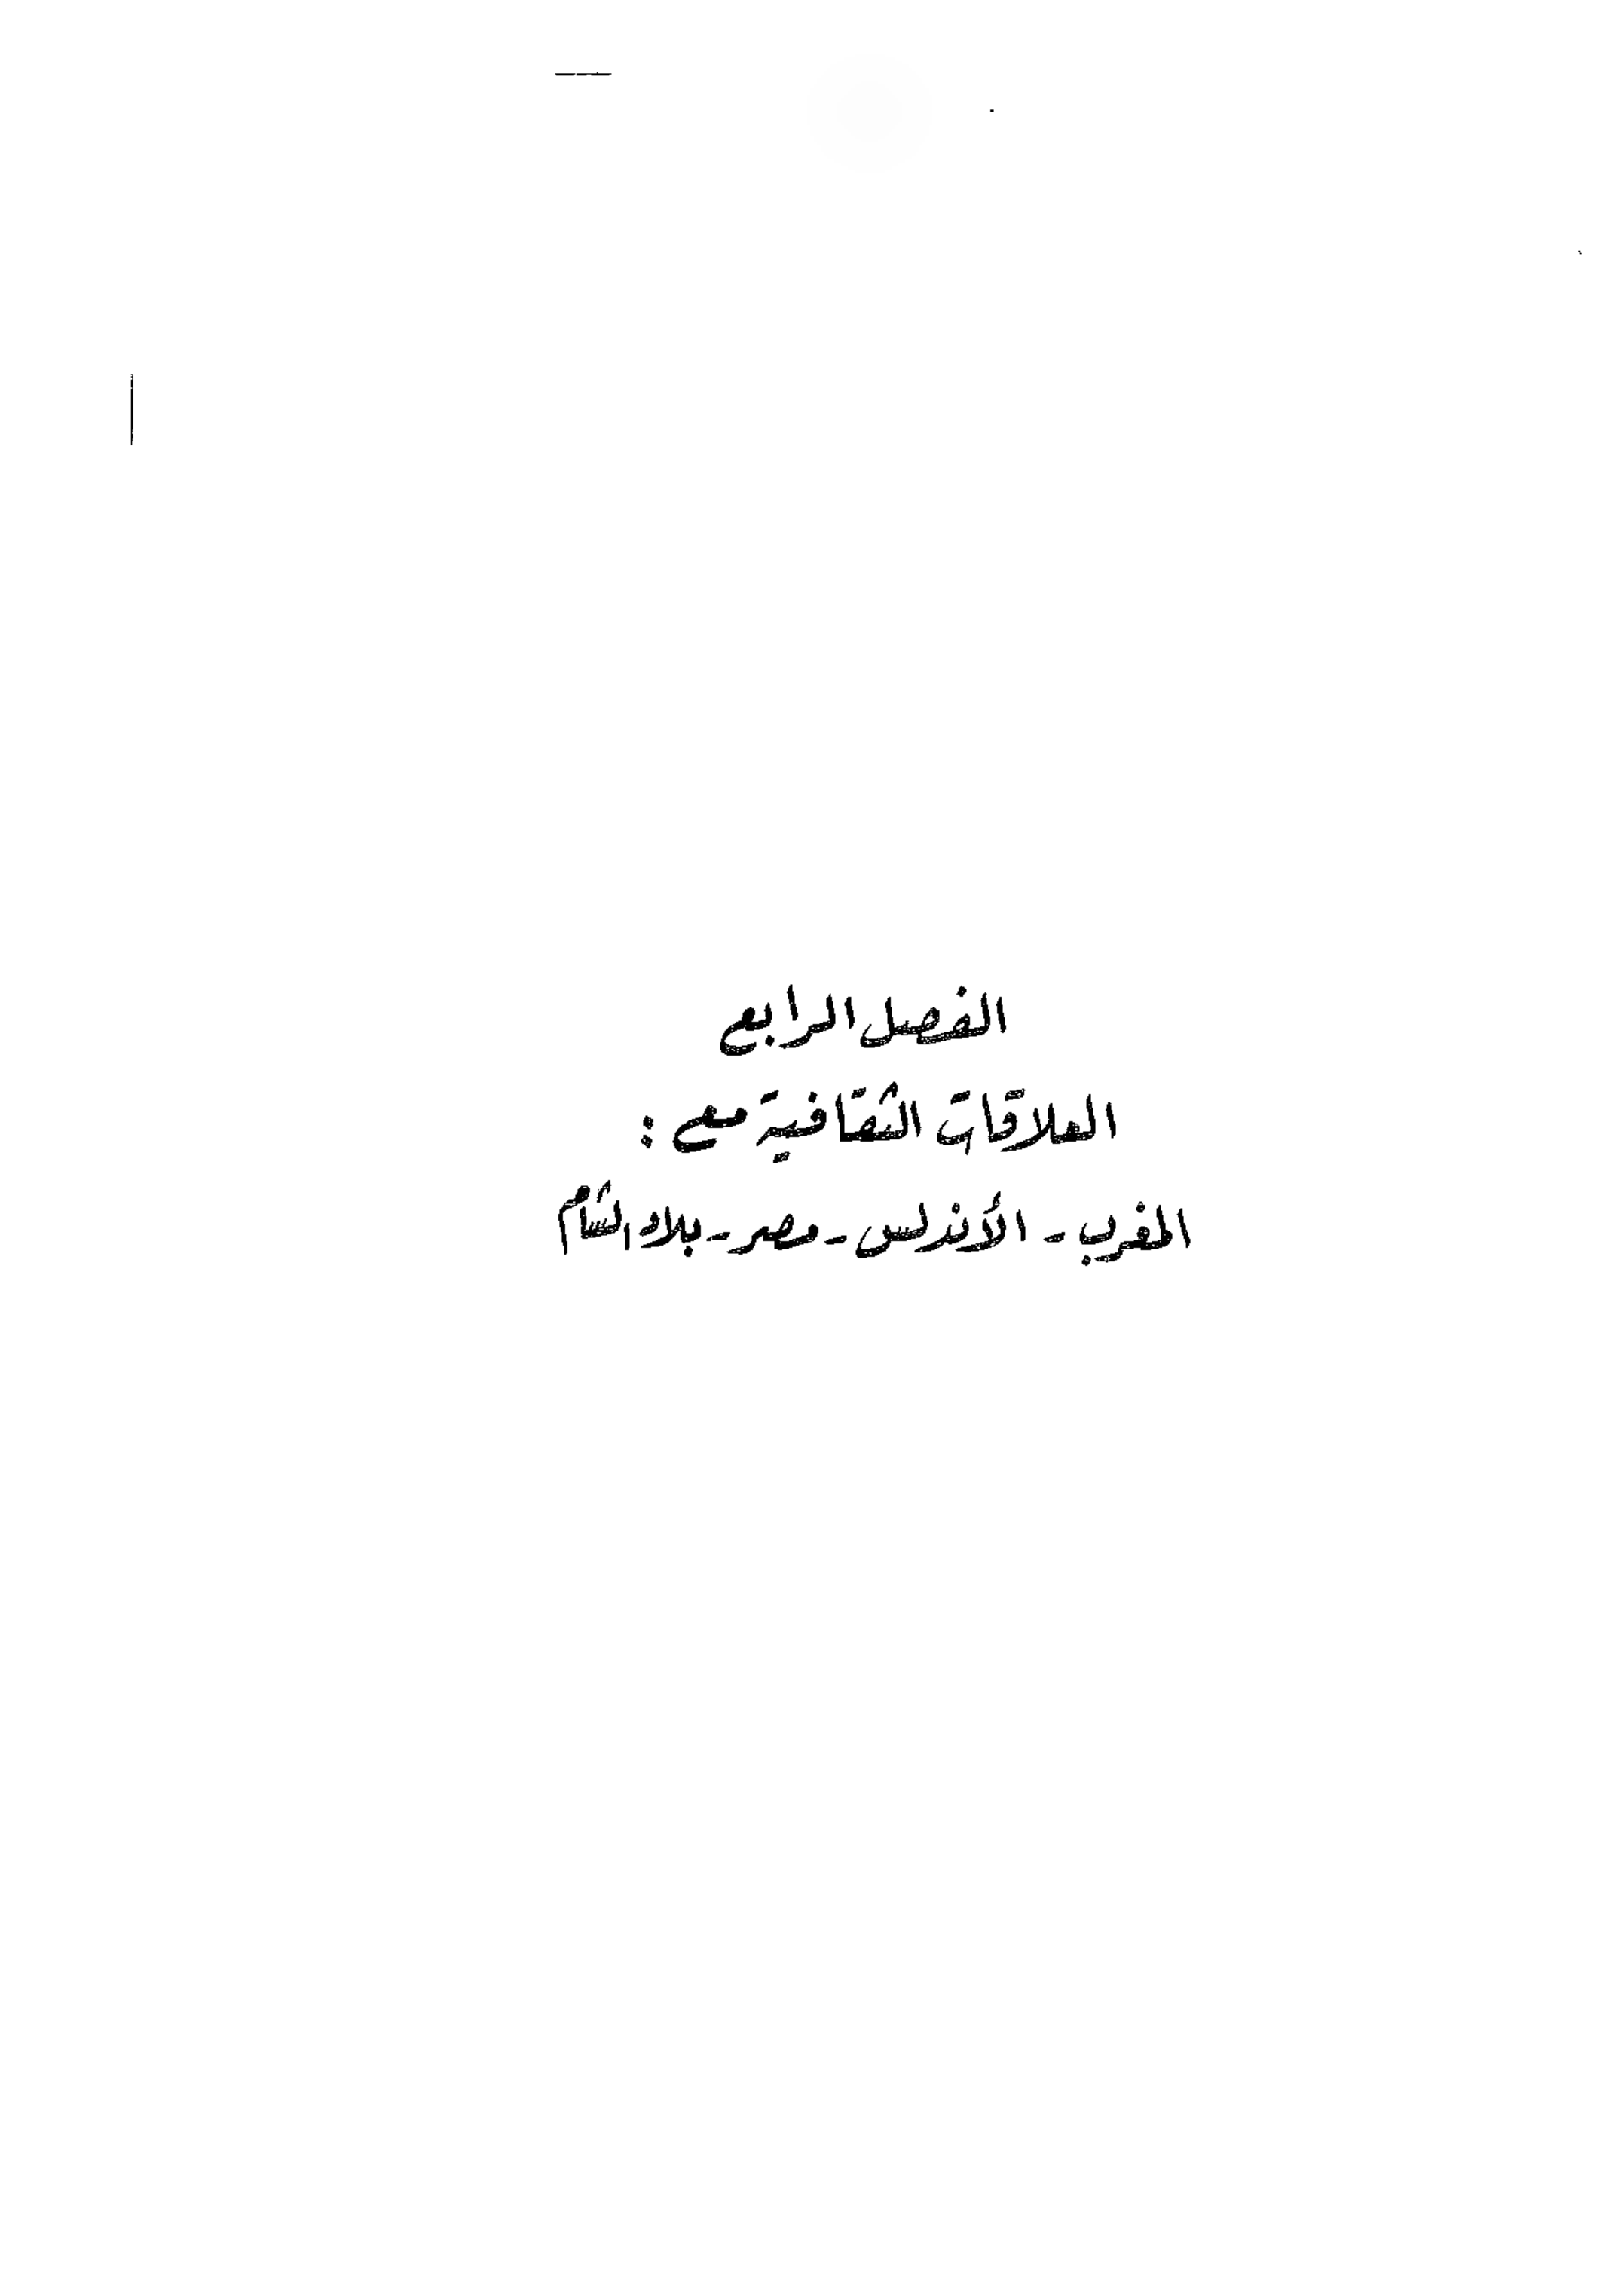 الفصل الرابع
العلاقات الثقافية مع :
المغرب - الأندلس - مصر - بلاد الشام